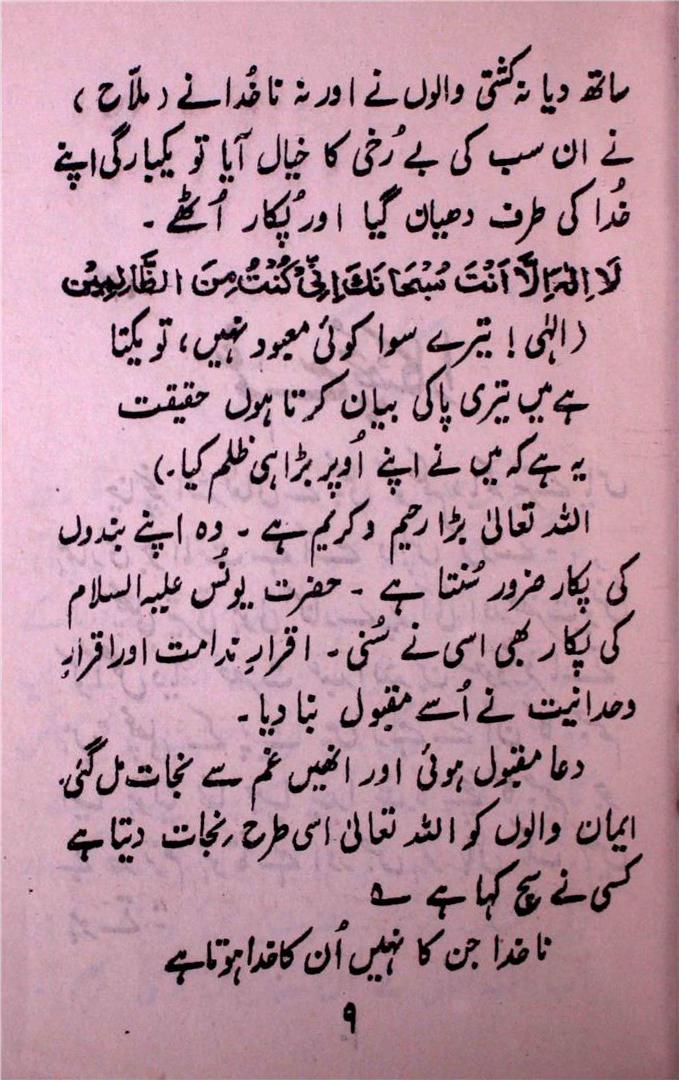 ساتھ دیا نہ کشتی والوں نے اور نہ ناخُدا نے (ملّاح)
نے ان سب کی بے رُخی کا خیال آیا تو یکبارگی اپنے
خُدا کی طرف دھیان گیا اور پُکار اُٹھے ۔
لَا اِلٰہَ اِلَّا اَنْتَ سُبْحَانَكَ اِنِّیْ كُنْتُ مِنَ الظَّالِمِیْن
(الٰہی! تیرے سوا کوئی معبود نہیں، تو یکتا
ہے میں تیری پاکی بیان کرتا ہوں حقیقت
یہ ہے کہ میں نے اپنے اُوپر بڑا ہی ظلم کیا۔)
اللہ تعالیٰ بڑا رحیم و کریم ہے ۔ وہ اپنے بندوں
کی پکار ضرور سُنتا ہے ۔ حضرت یونُس علیہ السلام
کی پکار بھی اسی نے سُنی ۔ اقرارِ ندامت اور اقرارِ
وحدانیت نے اُسے مقبول بنا دیا ۔
دعا مقبول ہوئی اور انھیں غم سے نجات مل گئی.
ایمان والوں کو اللہ تعالیٰ اسی طرح نجات دیتا ہے
کسی نے سچ کہا ہے ؎
ناخدا جن کا نہیں اُن کا خدا ہوتا ہے
۹